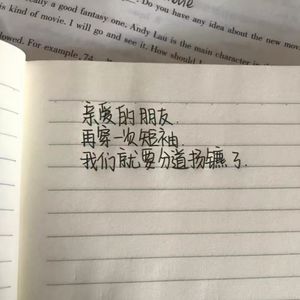 ally a good fantasy one. Andy Lau is the main character
is kind of movie. I will go and see it.
lowed. For example, 74
Do you have any idea about the new movie
How should I
亲爱的朋友.
再穿一次短袖.
我们就要分道扬镳了.